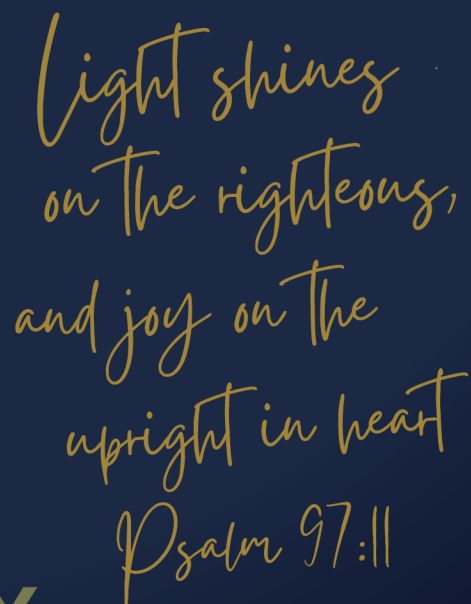 Light shines
on the righteous,
and joy on the
upright in heart
Psalm 97:11